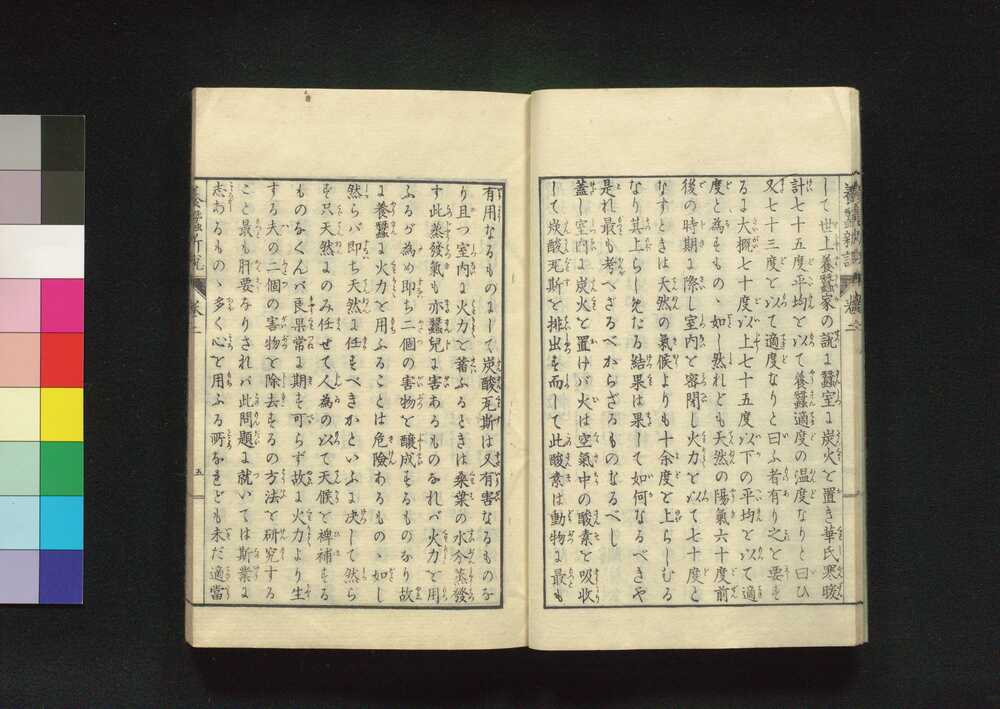 して世上養蠶家の説に蠶室に炭火を置き華氏寒暖
計七十五度平均を以て養蠶適度の温度なりと曰ひ
又七十三度を以て適度なりと曰ふ者有り之を要す
るに大概七十度以上七十五度以下の平均を以て適
度と為すものゝ如し然れども天然の陽氣六十度前
後の時期に際し室内を容閉し火力を以て七十度と
なすときは天然の氣候よりも十余度を上らしむる
なり其上らしめたる結果は果して如何なるべきや
是れ最も考へざるべからざるものなるべし
蓋し室内に炭火を置けバ火は空氣中の酸素を吸收
して炭酸瓦斯を排出す而して此酸素は動物に最も
有用なるものにして炭酸瓦斯は又有害なるものな
り且つ室内に火力を蓄ふるときは桑葉の水分蒸發
す此蒸發氣も亦蠶兒に害あるものなれバ火力を用
ふるが為め即ち二個の害物を醸成するものなり故
に養蠶に火力を用ふることは危險あるものゝ如し
然らバ即ち天然に任すべきかといふに决して然ら
ず只天然にのみ任せて人為の以て天候を裨補する
ものなくんバ良果常に期す可らず故に火力より生
する夫の二個の害物を除去するの方法を研究する
こと最も肝要なりされバ此問題に就いては斯業に
志あるものゝ多く心を用ふる所なれども未だ適當
五